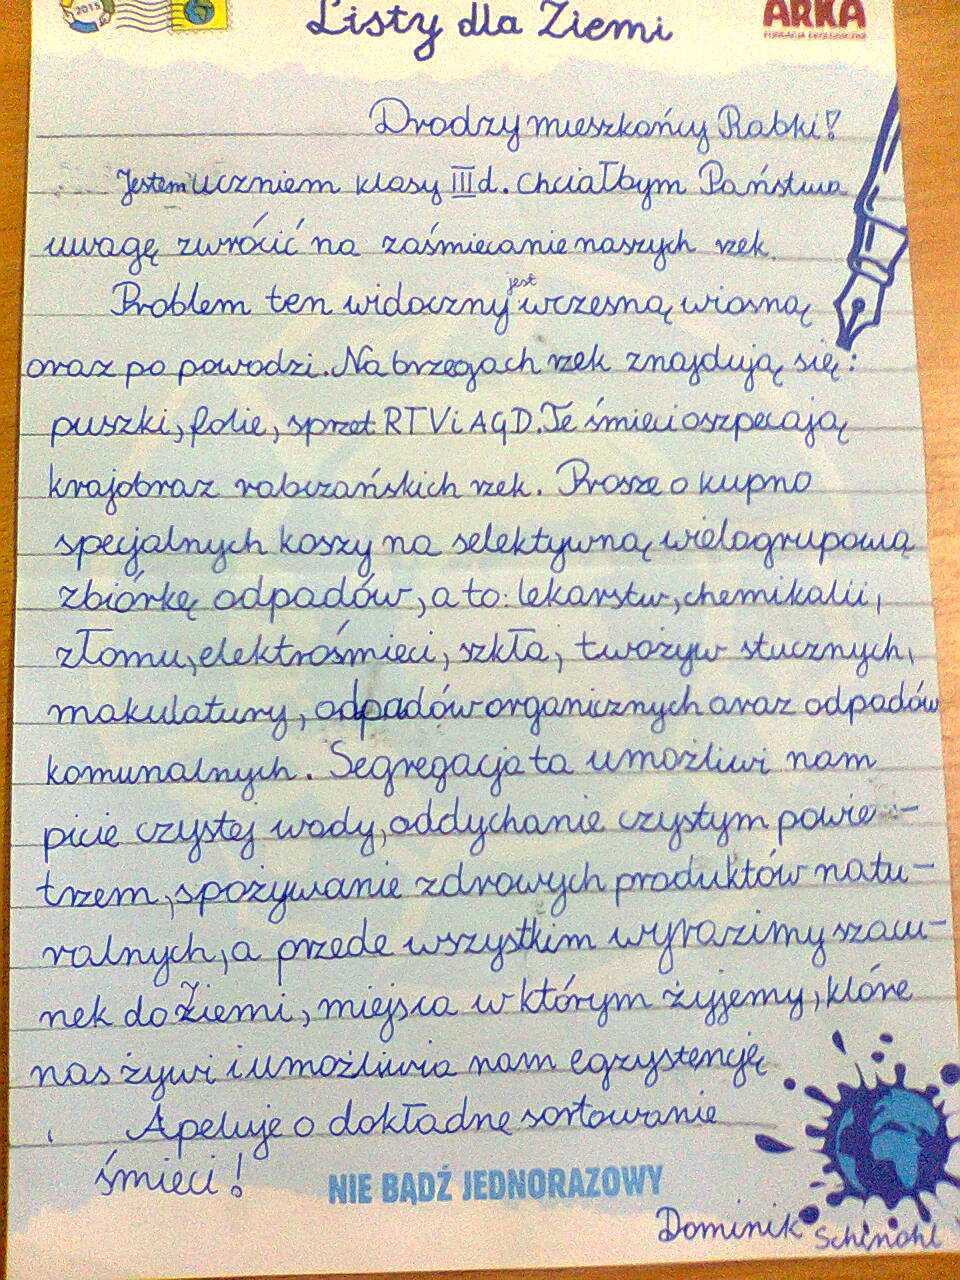 2015
Listy dla Ziemi
ARKA
FUNDACJA EKOLOGICZNA
Drodzy mieszkańcy Rabki!
Jestem uczniem klasy III d. Chciałbym Państwa
uwagę zwrócić na zaśmiecanie naszych rzek.
Problem ten widoczny jest wczesną wiosną
oraz po powodzi. Na brzegach rzek znajdują się:
puszki, folie, sprzęt RTV i AGD. Te śmieci oszpecają
krajobraz rabczańskich rzek. Prosze o kupno
specjalnych koszy na selektywną wielogrupową
zbiórkę odpadów, a to: lekarstw, chemikalii,
złomu, elektrośmieci, szkła, twożyw stucznych,
makulatury, odpadów organicznych oraz odpadów
komunalnych. Segregacja ta umożliwi nam
picie czystej wody, oddychanie czystym powie-
trzem, spożywanie zdrowych produktów natu-
ralnych, a przede wszystkim wyrazimy szacu-
nek do Ziemi, miejsca w którym żyjemy, które
nas żywi i umożliwia nam egzystencję
Apeluje o dokładne sortowanie
śmieci!
NIE BĄDŹ JEDNORAZOWY
Dominik Schindhl